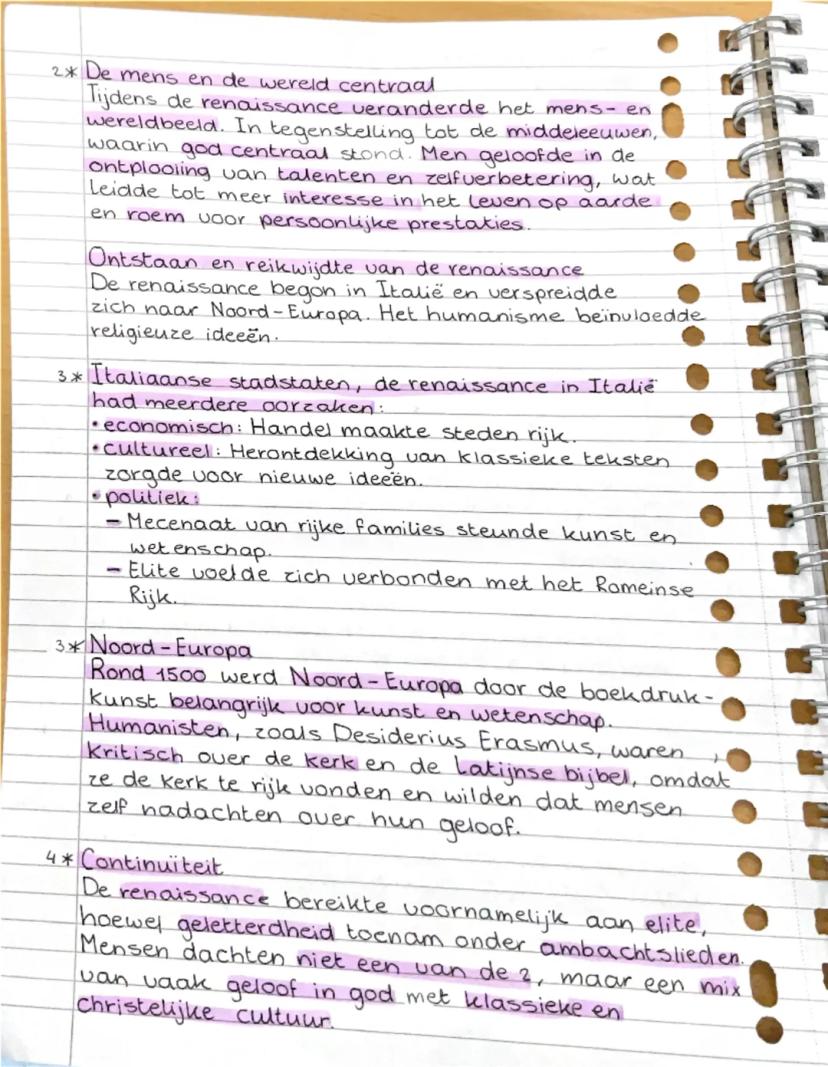 2* De mens en de wereld centraal
Tijdens de renaissance veranderde het mens- en
wereldbeeld. In tegenstelling tot de middeleeuwen,
waarin god centraal stond. Men geloofde in de
ontplooiing van talenten en zelfverbetering, wat
leidde tot meer interesse in het leven op aarde
en roem voor persoonlijke prestaties.
Ontstaan en reikwijdte van de renaissance
De renaissance begon in Italië en verspreidde
zich naar Noord-Europa. Het humanisme beïnvloedde
religieuze ideeën.
3* Italiaanse stadstaten, de renaissance in Italië
had meerdere oorzaken:
• economisch: Handel maakte steden rijk.
• cultureel: Herontdekking van klassieke teksten
zorgde voor nieuwe ideeën.
• politiek:
- Mecenaat van rijke families steunde kunst en
wetenschap.
- Elite voelde zich verbonden met het Romeinse
Rijk.
3* Noord-Europa
Rond 1500 werd Noord-Europa door de boekdruk-
kunst belangrijk voor kunst en wetenschap.
Humanisten, zoals Desiderius Erasmus, waren
kritisch over de kerk en de Latijnse bijbel, omdat
ze de kerk te rijk vonden en wilden dat mensen
zelf nadachten over hun geloof.
4* Continuïteit
De renaissance bereikte voornamelijk aan elite,
hoewel geletterdheid toenam onder ambachtslieden.
Mensen dachten niet een van de 2, maar een mix
van vaak geloof in god met klassieke en
christelijke cultuur.